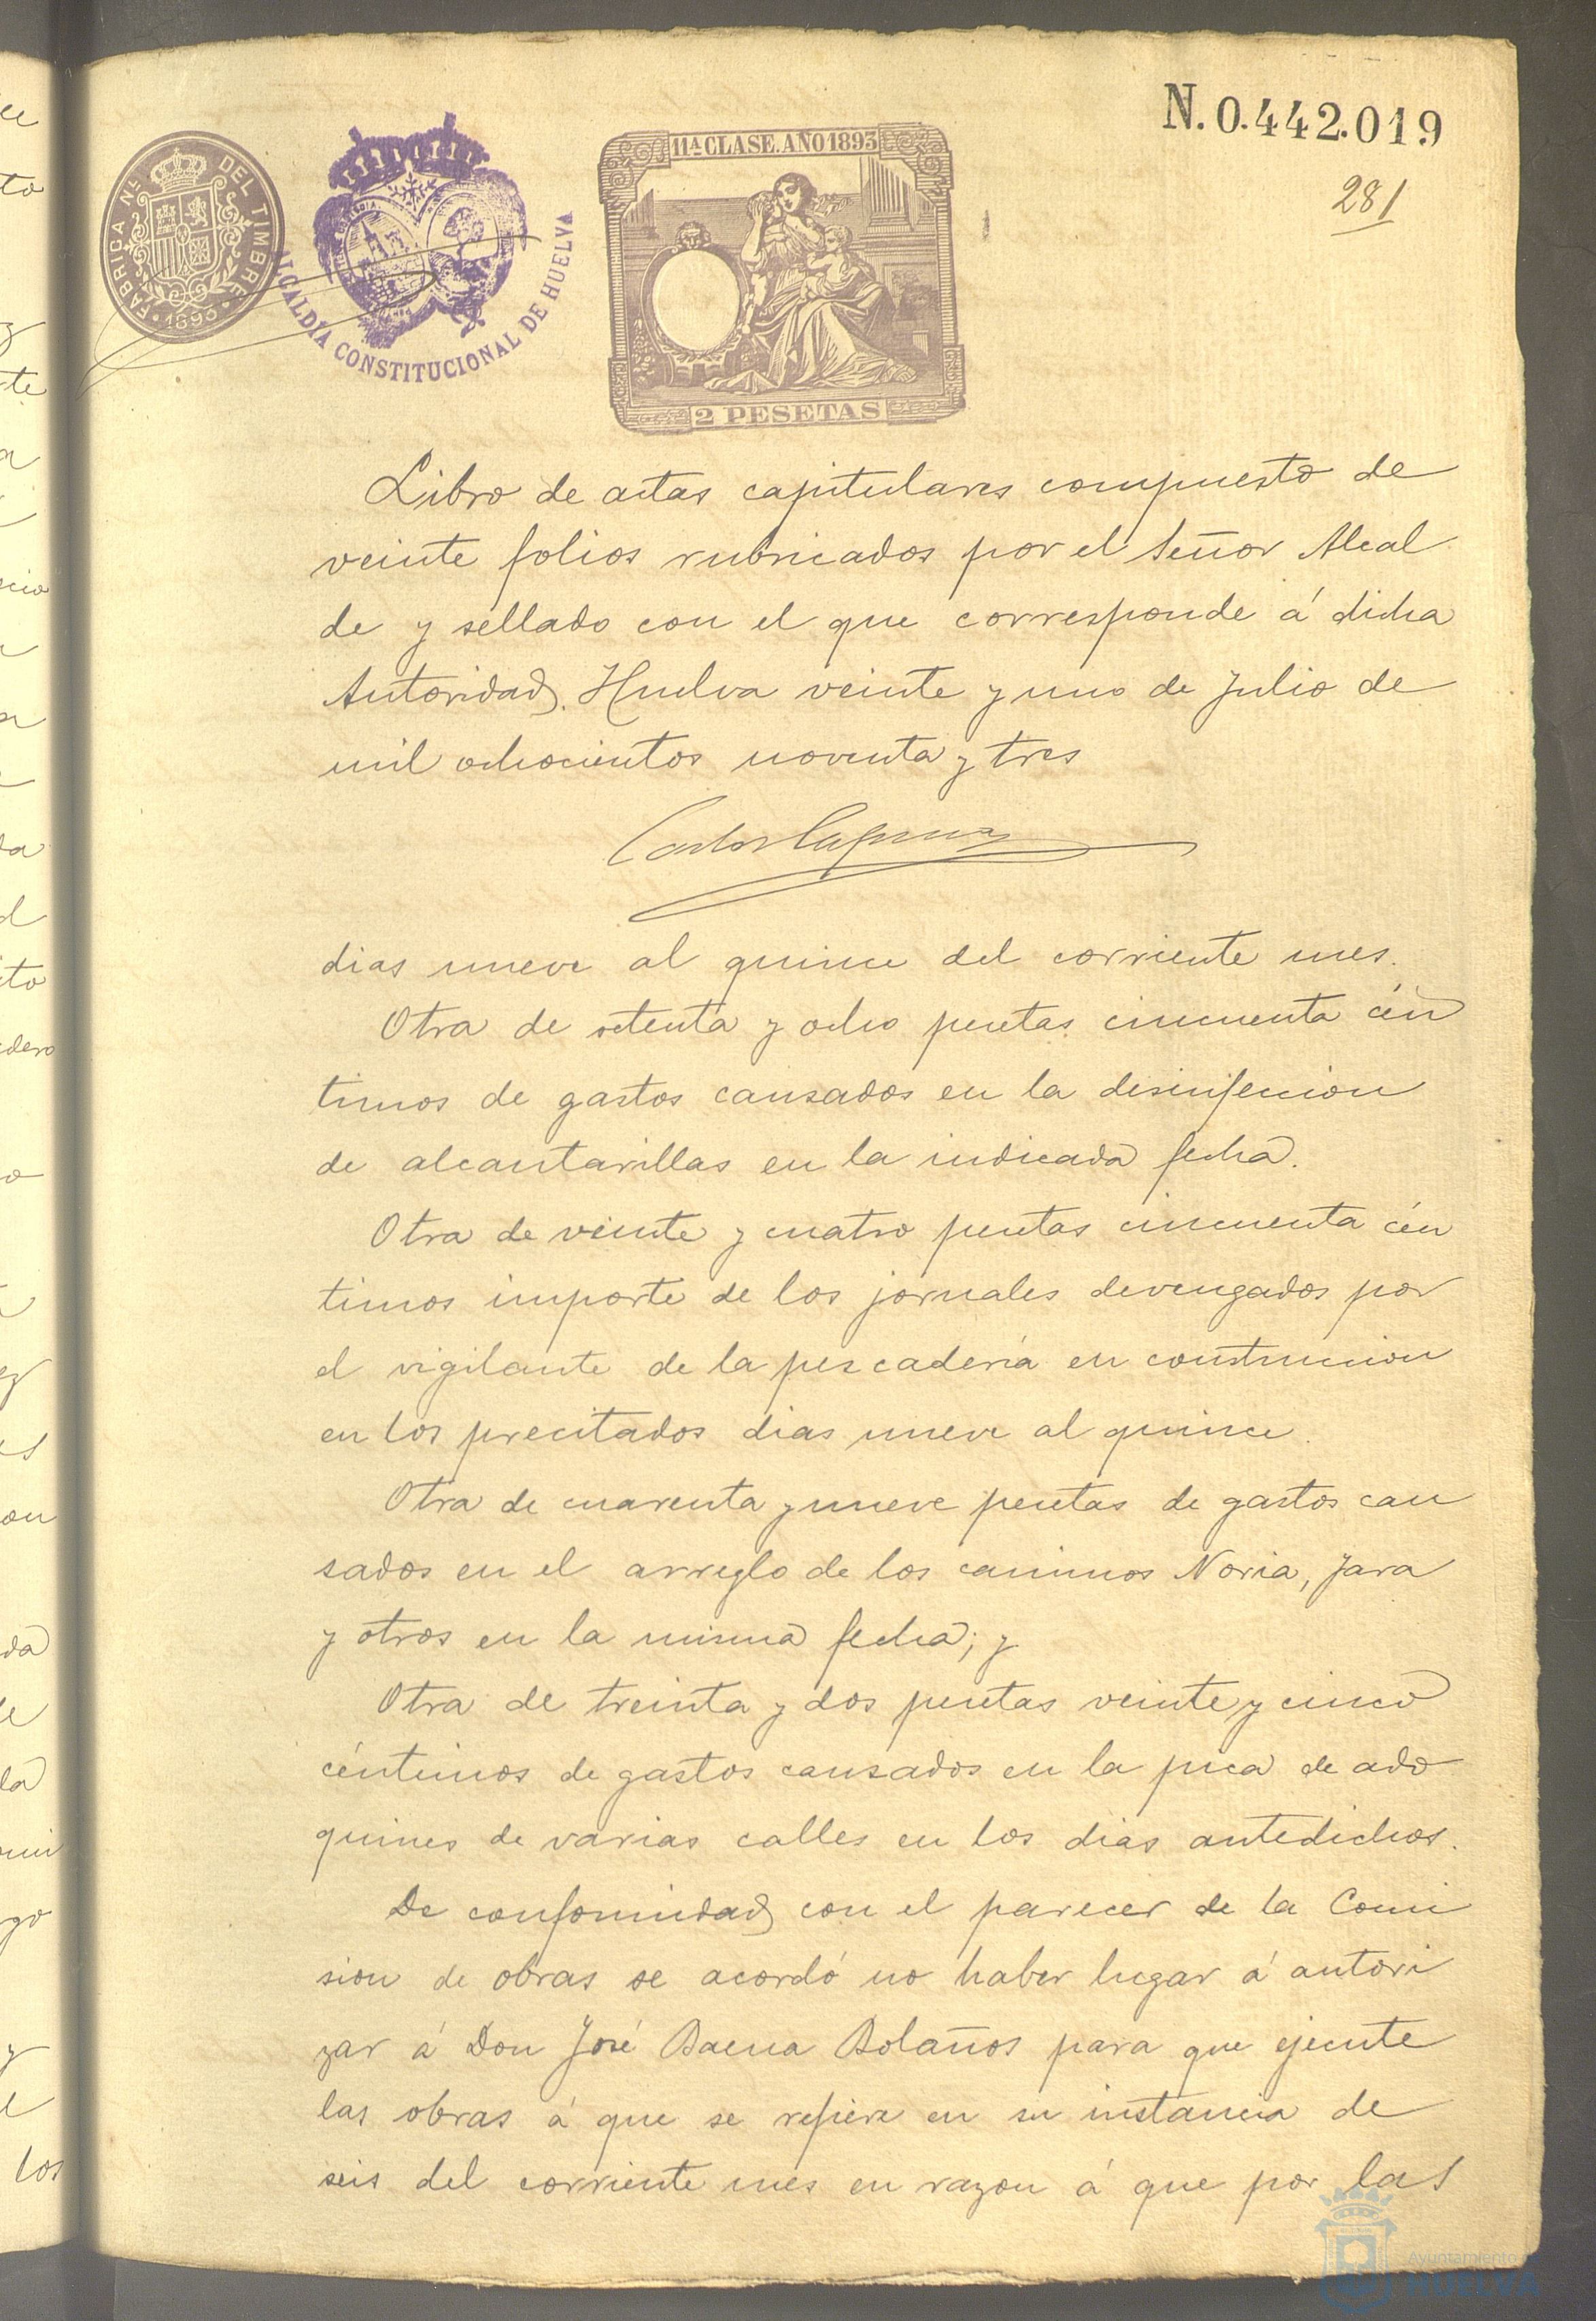 N.0.442.019
281
FABRICA Nᴸ DEL TIMBRE
1893
ALCALDÍA CONSTITUCIONAL DE HUELVA
11ª CLASE. AÑO 1893
2 PESETAS
Libro de actas capitulares compuesto de
veinte folios rubricados por el Señor Alcal
de y sellado con el que corresponde á dicha
Autoridad. Huelva veinte y uno de Julio de
mil ochocientos noventa y tres
dias nueve al quince del corriente mes.
Otra de setenta y ocho pesetas cincuenta cén
timos de gastos causados en la desinfeccion
de alcantarillas en la indicada fecha.
Otra de veinte y cuatro pesetas cincuenta cén
timos importe de los jornales devengados por
el vigilante de la pescadería en construccion
en los precitados dias nueve al quince.
Otra de cuarenta y nueve pesetas de gastos cau
sados en el arreglo de los caminos Noria, Jara
y otros en la misma fecha; y
Otra de treinta y dos pesetas veinte y cinco
céntimos de gastos causados en la pica de ado
quines de varias calles en los dias antedichos.
De conformidad con el parecer de la Comi
sion de obras se acordó no haber lugar á autori
zar á Don José Baena Bolaños para que ejecute
las obras á que se refiere en su instancia de
seis del corriente mes en razon á que por las
Ayuntamiento
HUELVA